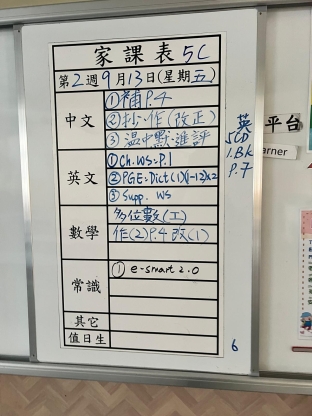 家課表 5C
第2週9月13日(星期五)
中文
①補P.4
②抄.作(改正)
③溫中默.進評
英文
①Ch.WS:P.1
②PGE:Dict(1)(-12)x2
③Supp. WS
數學
多位數(工)
作(2)P.4改(1)
常識
① e-smart 2.0
其它
值日生
英
1.Bk
P.7
6
平台
arner